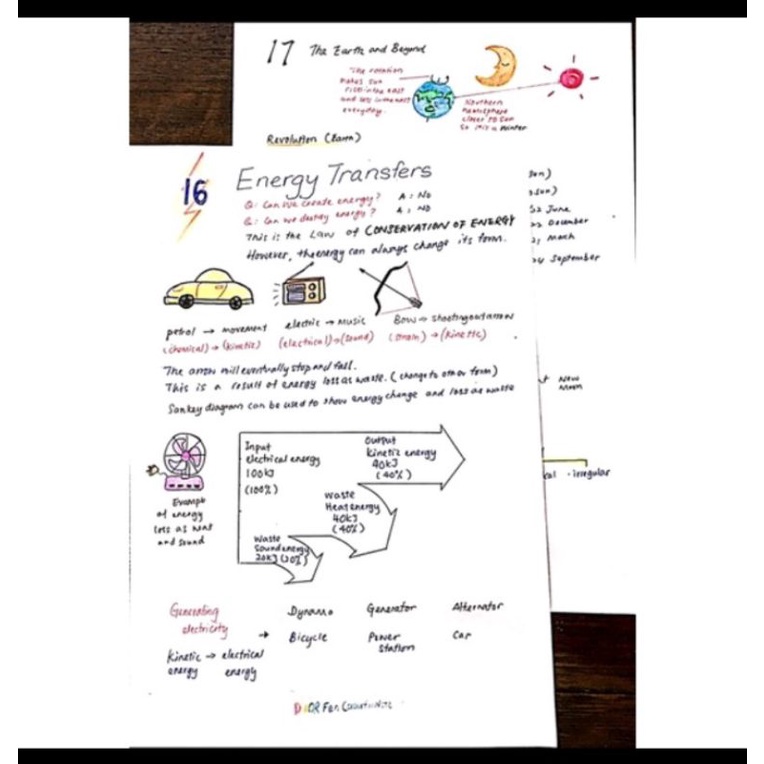 17 The Earth and Beyond
The rotation
makes sun
rise in the east
and sets in the west
everyday.
Northern
hemisphere
closer to sun
so it is a winter
Revolution (Earth)
22 June
22 December
21 March
24 September
New
Moon
- irregular
16 Energy Transfers
Q: Can we create energy? A: No
Q: Can we destroy energy? A: No
This is the Law of CONSERVATION OF ENERGY
However, the energy can always change its form.
petrol → movement electric → music Bow → shooting out arrow
(chemical) → (kinetic) (electrical) → (sound) (strain) → (kinetic)
The arrow will eventually stop and fall.
This is a result of energy loss as waste. (change to other form)
Sankey diagram can be used to show energy change and loss as waste
Input
electrical energy
100kJ
(100%)
Output
kinetic energy
40kJ
(40%)
Waste
Heat energy
40kJ
(40%)
Waste
Sound energy
20kJ (20%)
Example
of energy
loss as heat
and sound
Generating
electricity →
Kinetic → electrical
energy energy
Dynamo Generator Alternator
Bicycle Power
station Car